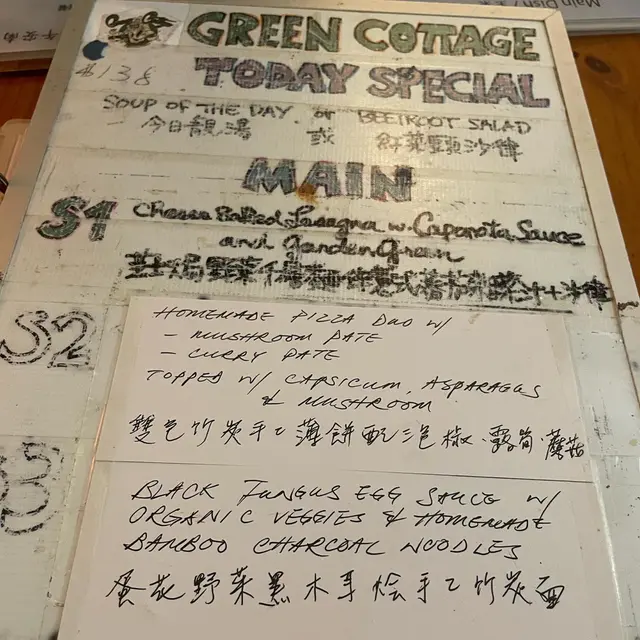 GREEN COTTAGE
$138
TODAY SPECIAL
SOUP OF THE DAY or BEETROOT SALAD
今日靚湯 或 紅菜頭沙律
MAIN
S1
Cheese Baked Lasagna w. Caponata Sauce
and Garden Green
S2
HOMEMADE PIZZA DUO W/
- MUSHROOM PATE
- CURRY PATE
TOPPED W/ CAPSICUM, ASPARAGUS
& MUSHROOM
雙色竹炭手工薄餅配三色椒·露筍·蘑菇
S3
BLACK FUNGUS EGG SAUCE W/
ORGANIC VEGGIES & HOMEMADE
BAMBOO CHARCOAL NOODLES
蛋花野菜黑木耳燴手工竹炭面